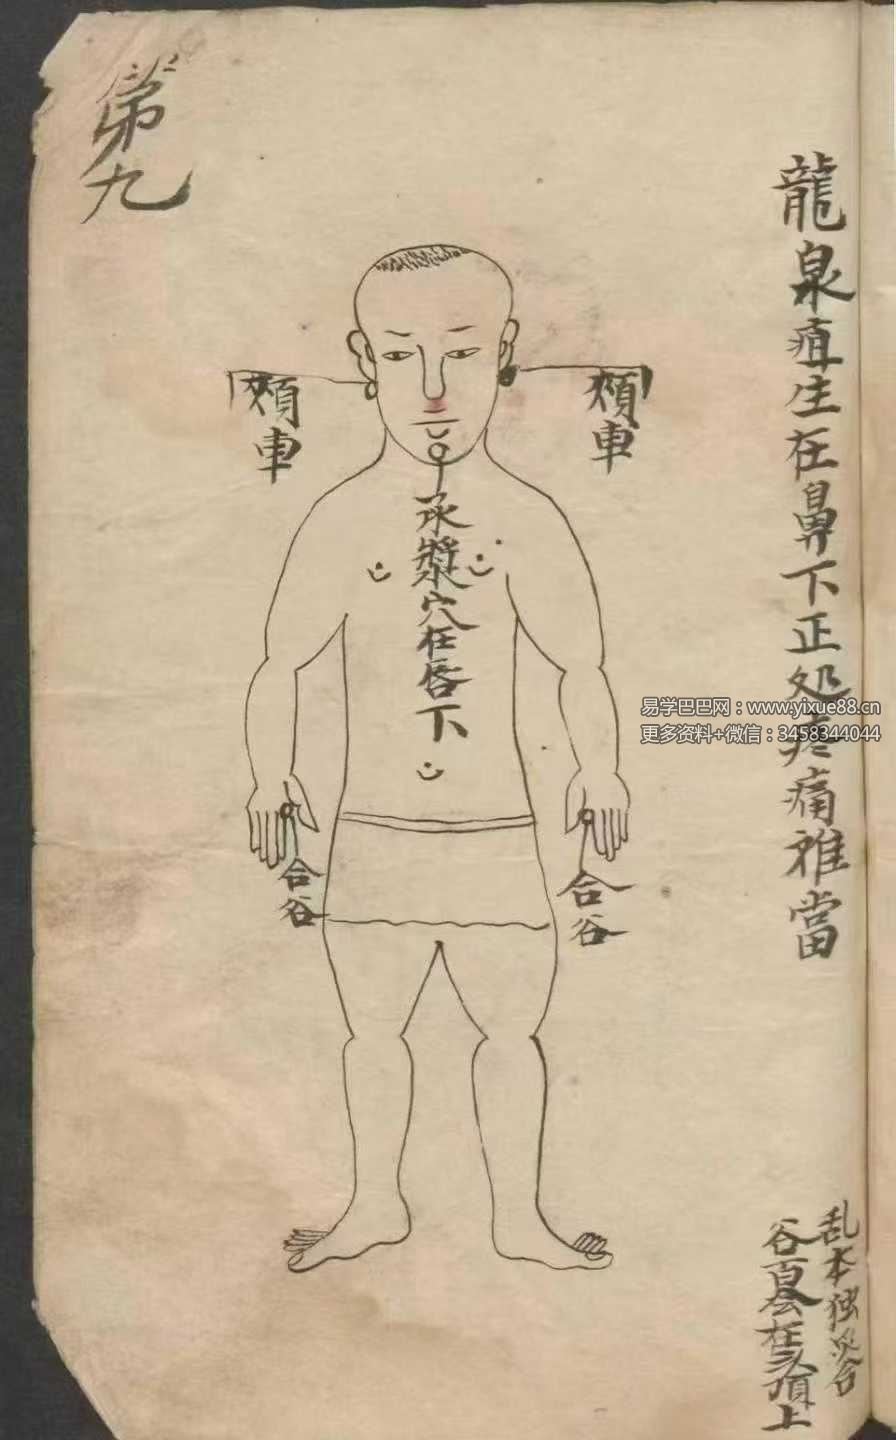 龍泉疽生在鼻下正处疼痛难當
乱本独灸合
谷百会在头頂上
第九
頰車
頰車
承漿穴在唇下
合谷
合谷
易学巴巴网：www.yixue88.cn
更多资料+微信：3458344044